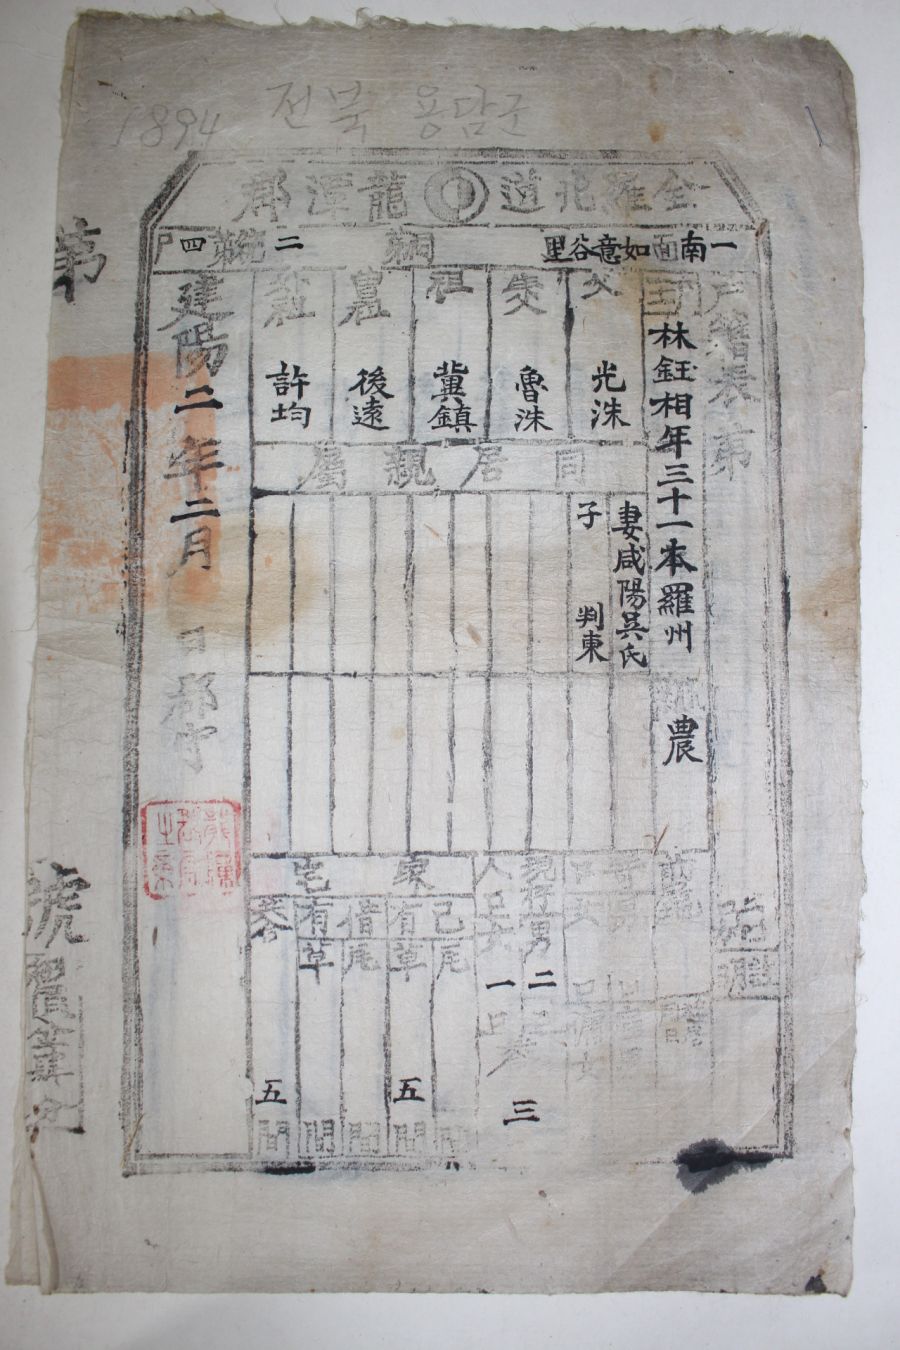 1894 전북 용담군
全羅北道 龍潭郡
一南面如意谷里 洞 第二統第四戶
戶籍表 第 號
戶主 林鈺相年三十一本羅州 農
父 光洙
生父 魯洙
祖 冀鎮
曾祖 後遠
外祖 許均
同居親屬
妻咸陽吳氏
子 判東
現存男 二口
人口女 一口
共 三
家宅
己有 瓦 間
草 五間
借有 瓦 間
草 間
共合 五間
建陽二年二月 日郡守
第 號